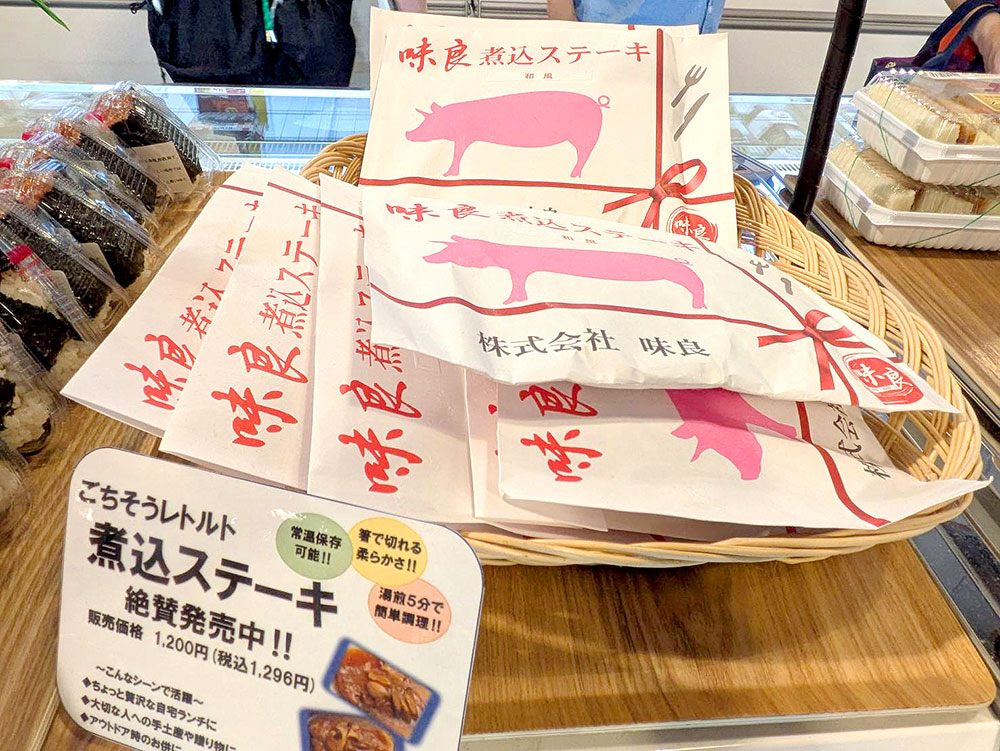 味良 煮込ステーキ
和風
味良
味良 煮込ステーキ
和風
株式会社 味良
味良
味良 煮込ステ
味良 煮込ステーキ
味良 煮
味良
株式会
ごちそうレトルト
煮込ステーキ
絶賛発売中!!
販売価格 1,200円(税込1,296円)
常温保存
可能!!
箸で切れる
柔らかさ!!
湯煎5分で
簡単調理!!
～こんなシーンで活躍～
◆ちょっと贅沢な自宅ランチに
◆大切な人への手土産や贈り物に
◆アウトドア時のお供に